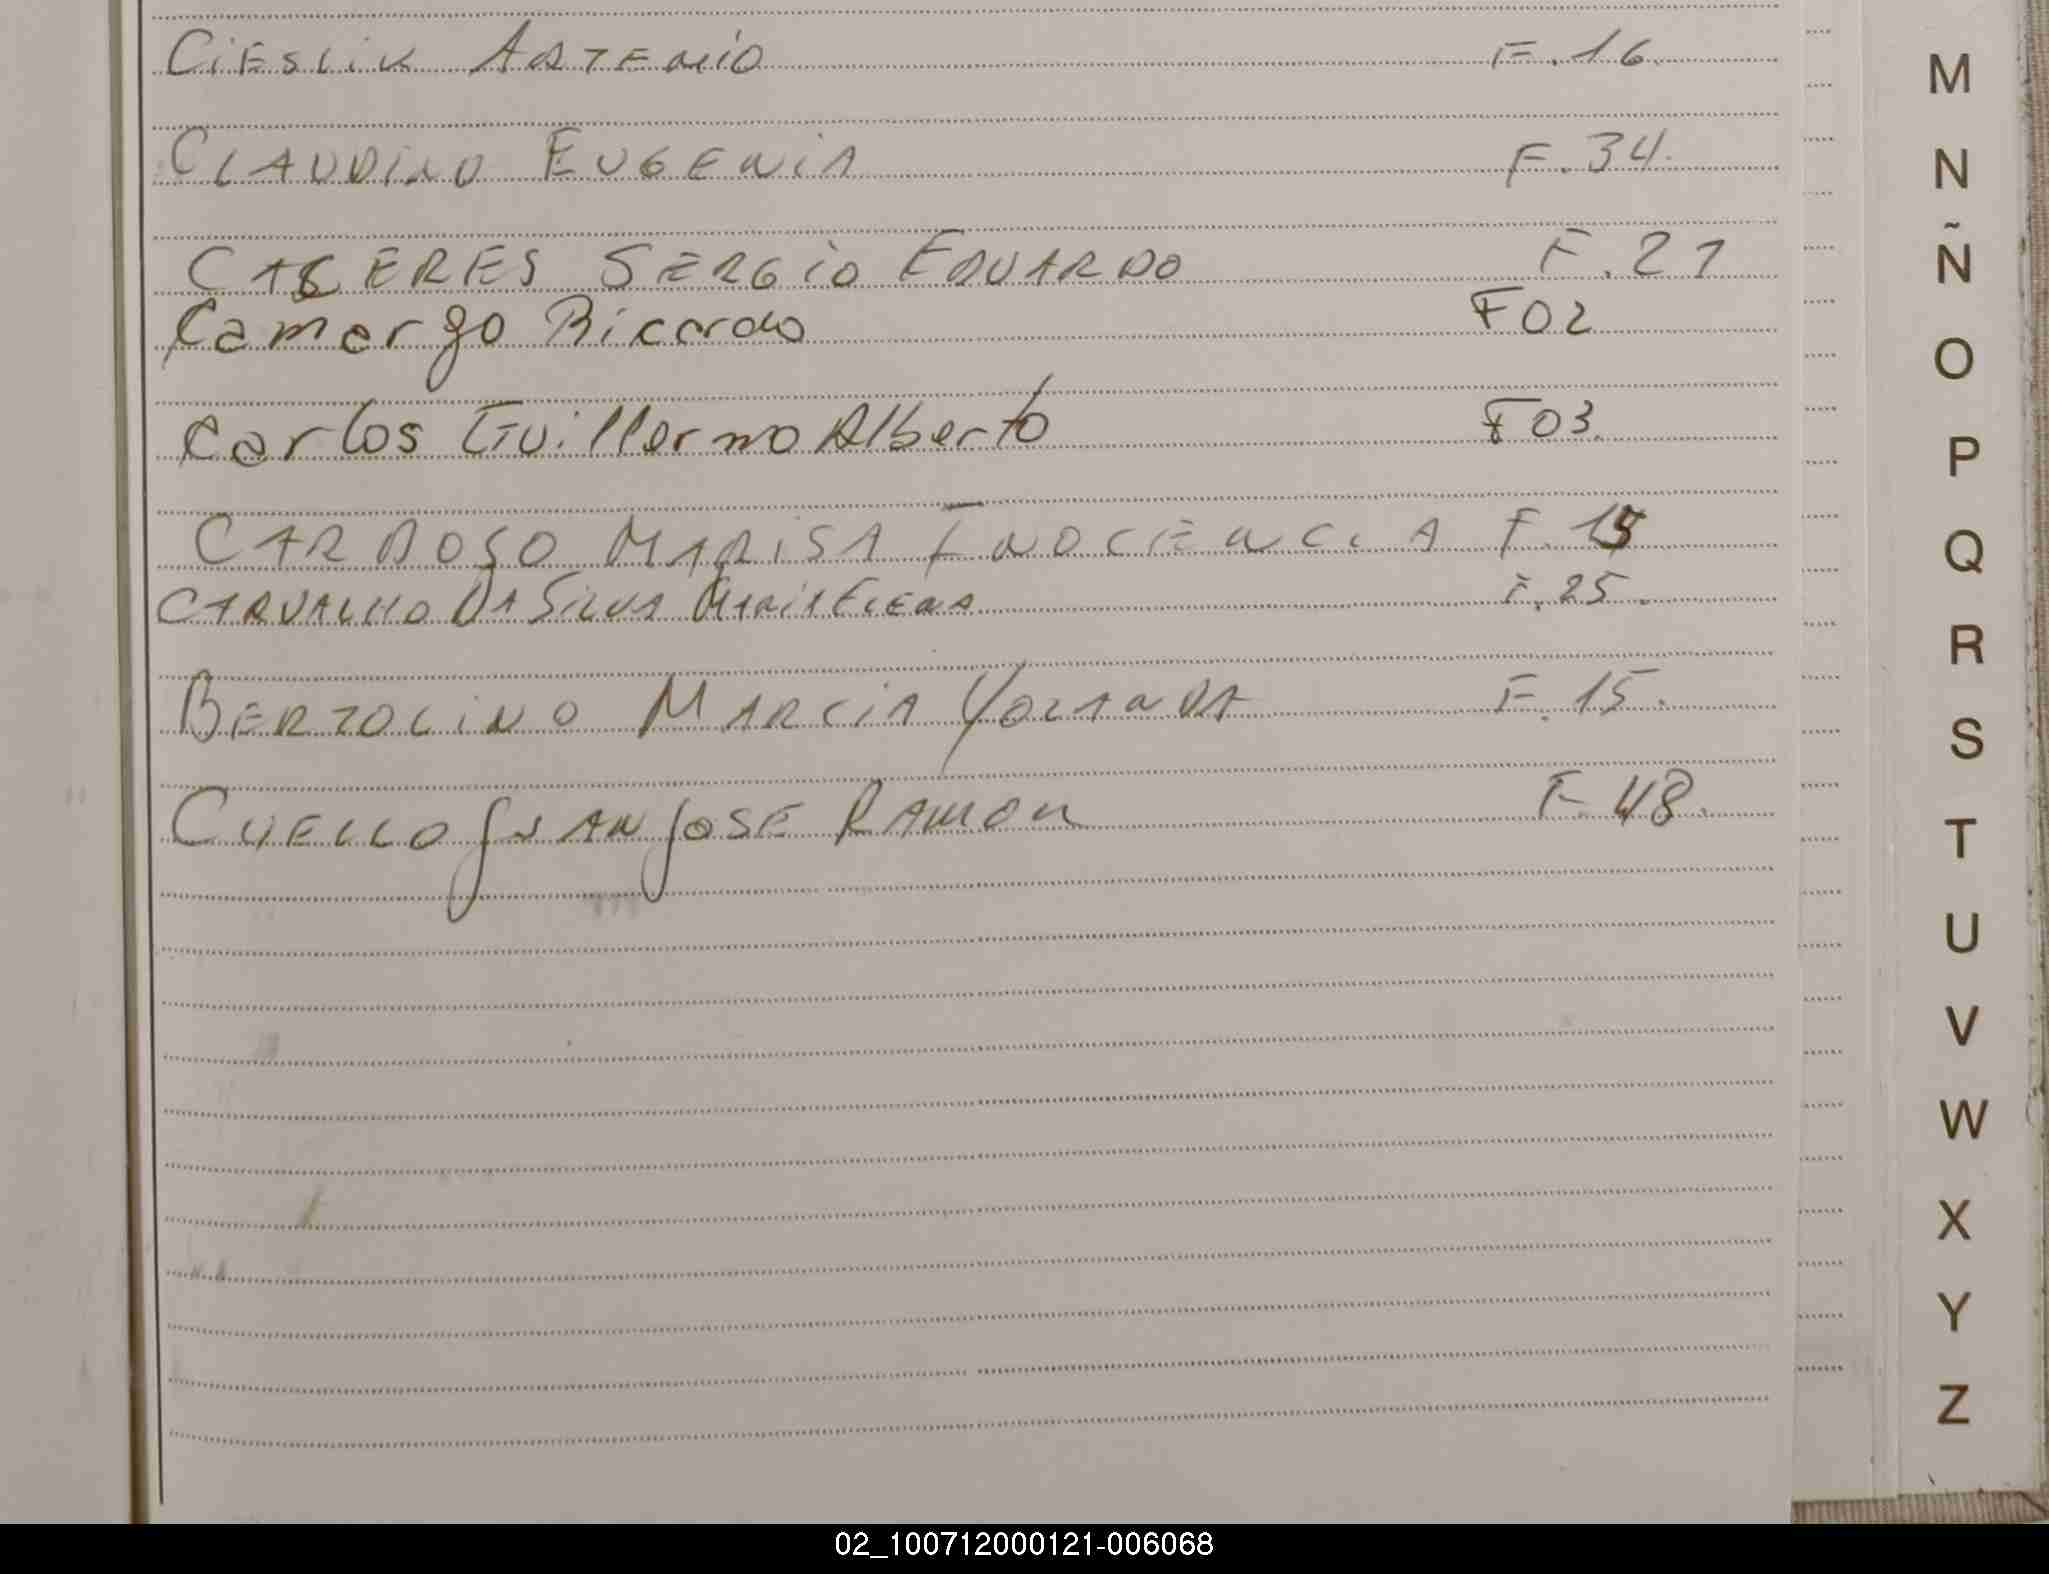 CiESLiK ARTEMiO F.16.
CLAUDINO EUGENIA F.34.
CACERES SERGiO EDUARDO F.21
Camargo Ricardo F02
Carlos Guillermo Alberto F03.
CARDOSO MARISA INOCIENCIA F.15
CARVALHO DA SILVA MARIA ELENA F.25.
BERTOLINO MARCIA YOLANDA F.15.
CUELLO JUAN JOSE RAMON F.48.
M
N
Ñ
O
P
Q
R
S
T
U
V
W
X
Y
Z
02_100712000121-006068